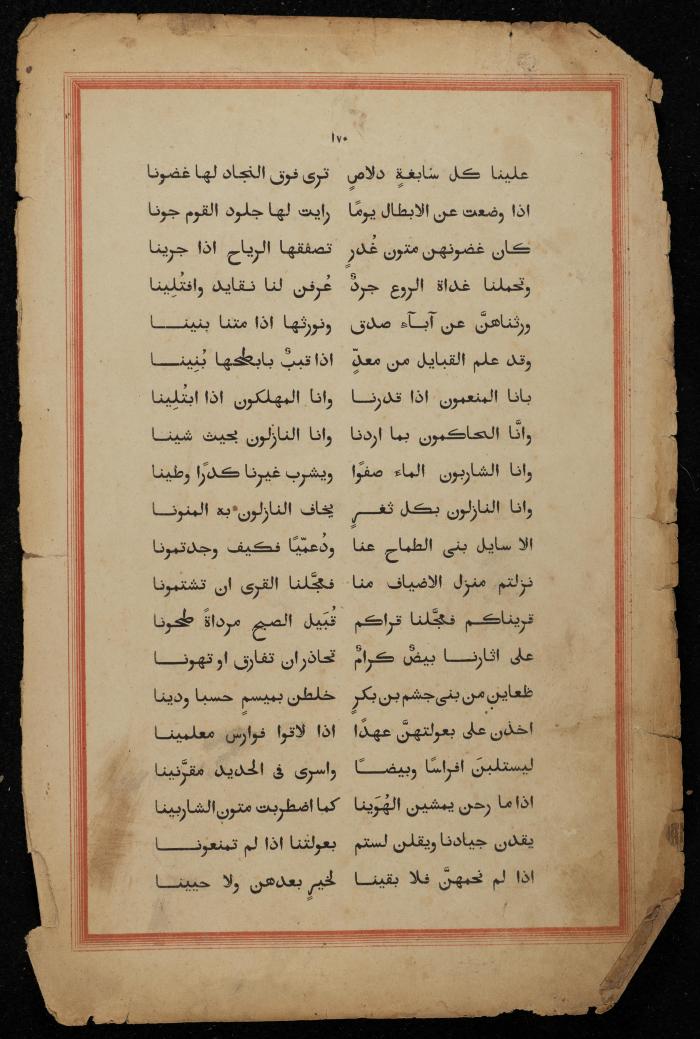 ١٧٠
علينا كل سَابغةٍ دلاصٍ ترى فوق النجاد لها غضونا
اذا وضعت عن الابطال يومًا رايت لها جلود القوم جونا
كان غضونهن متون غُدرٍ تصفقها الرياح اذا جرينا
وتحملنا غداة الروع جردٌ عُرفن لنا نقايد وافتُلِينا
ورثناهنَّ عن آبآء صدق ونورثها اذا متنا بنينـــا
وقد علم القبايل من معدٍّ اذا قببٌ بابطحها بُنِينـــا
بانا المنعمون اذا قدرنـــا وانا المهلكون اذا ابتُلِينا
وانَّا الحاكمون بما اردنا وانا النازلون بحيث شينا
وانا الشاربون الماء صفوًا ويشرب غيرنا كدرًا وطينا
وانا النازلون بكل ثغـــرٍ يخاف النازلون به المنونـــا
الا سايل بنى الطماح عنا ودُعميًّا فكيف وجدتمونا
نزلتم منزل الاضياف منا فعجَّلنا القرى ان تشتمونا
قريناكم فعجَّلنا قراكم قُبَيل الصبح مرداةً طحونا
على اثارنـــا بيضٌ كرامٌ تحاذر ان تفارق او تهونـــا
ظعاين من بنى جشم بن بكرٍ خلطن بميسمٍ حسبا ودينا
اخذن على بعولتهنَّ عهدًا اذا لاقوا فوارس معلمينـــا
ليستلبنَ افراسًا وبيضـــًا واسرى فى الحديد مقرَّنينا
اذا ما رحن يمشين الهُوَينا كما اضطربت متون الشاربينا
يقدن جيادنا ويقلن لستم بعولتنا اذا لم تمنعونـــا
اذا لم نحمهنَّ فلا بقينـــا لخيرٍ بعدهن ولا حيينـــا